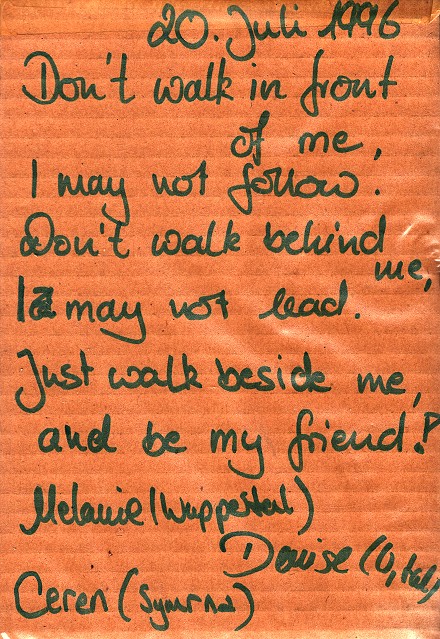 20. Juli 1996
Don't walk in front
of me,
I may not follow.
Don't walk behind
me,
I may not lead.
Just walk beside me,
and be my friend!
Melanie (Wuppertal)
Denise (W,tal)
Ceren (Symrna)